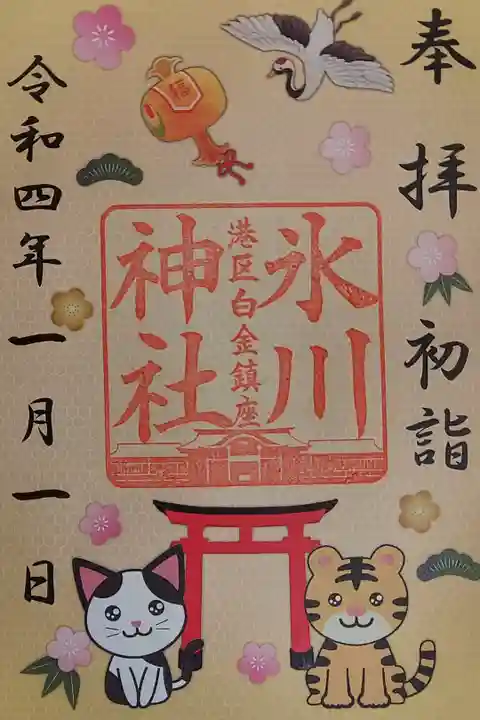 奉拝 初詣
氷川
港区白金鎮座
神社
令和四年一月一日
福